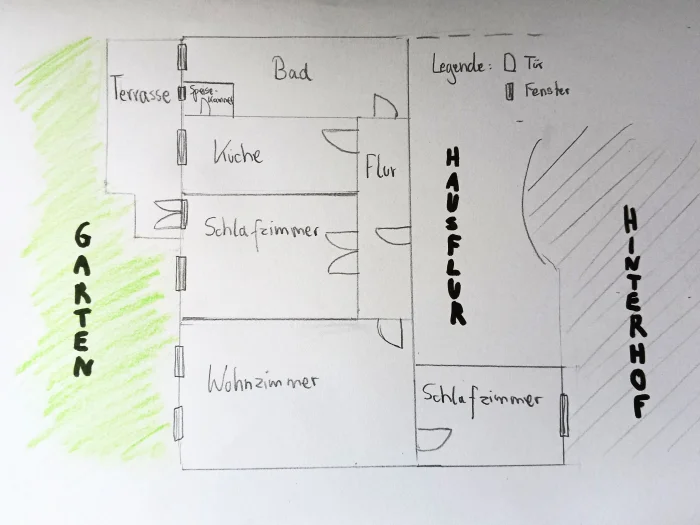 Bad
Legende: Tür
Fenster
Terrasse
Speise-
kammer
Küche
Flur
HAUSFLUR
Schlafzimmer
GARTEN
HINTERHOF
Wohnzimmer
Schlafzimmer